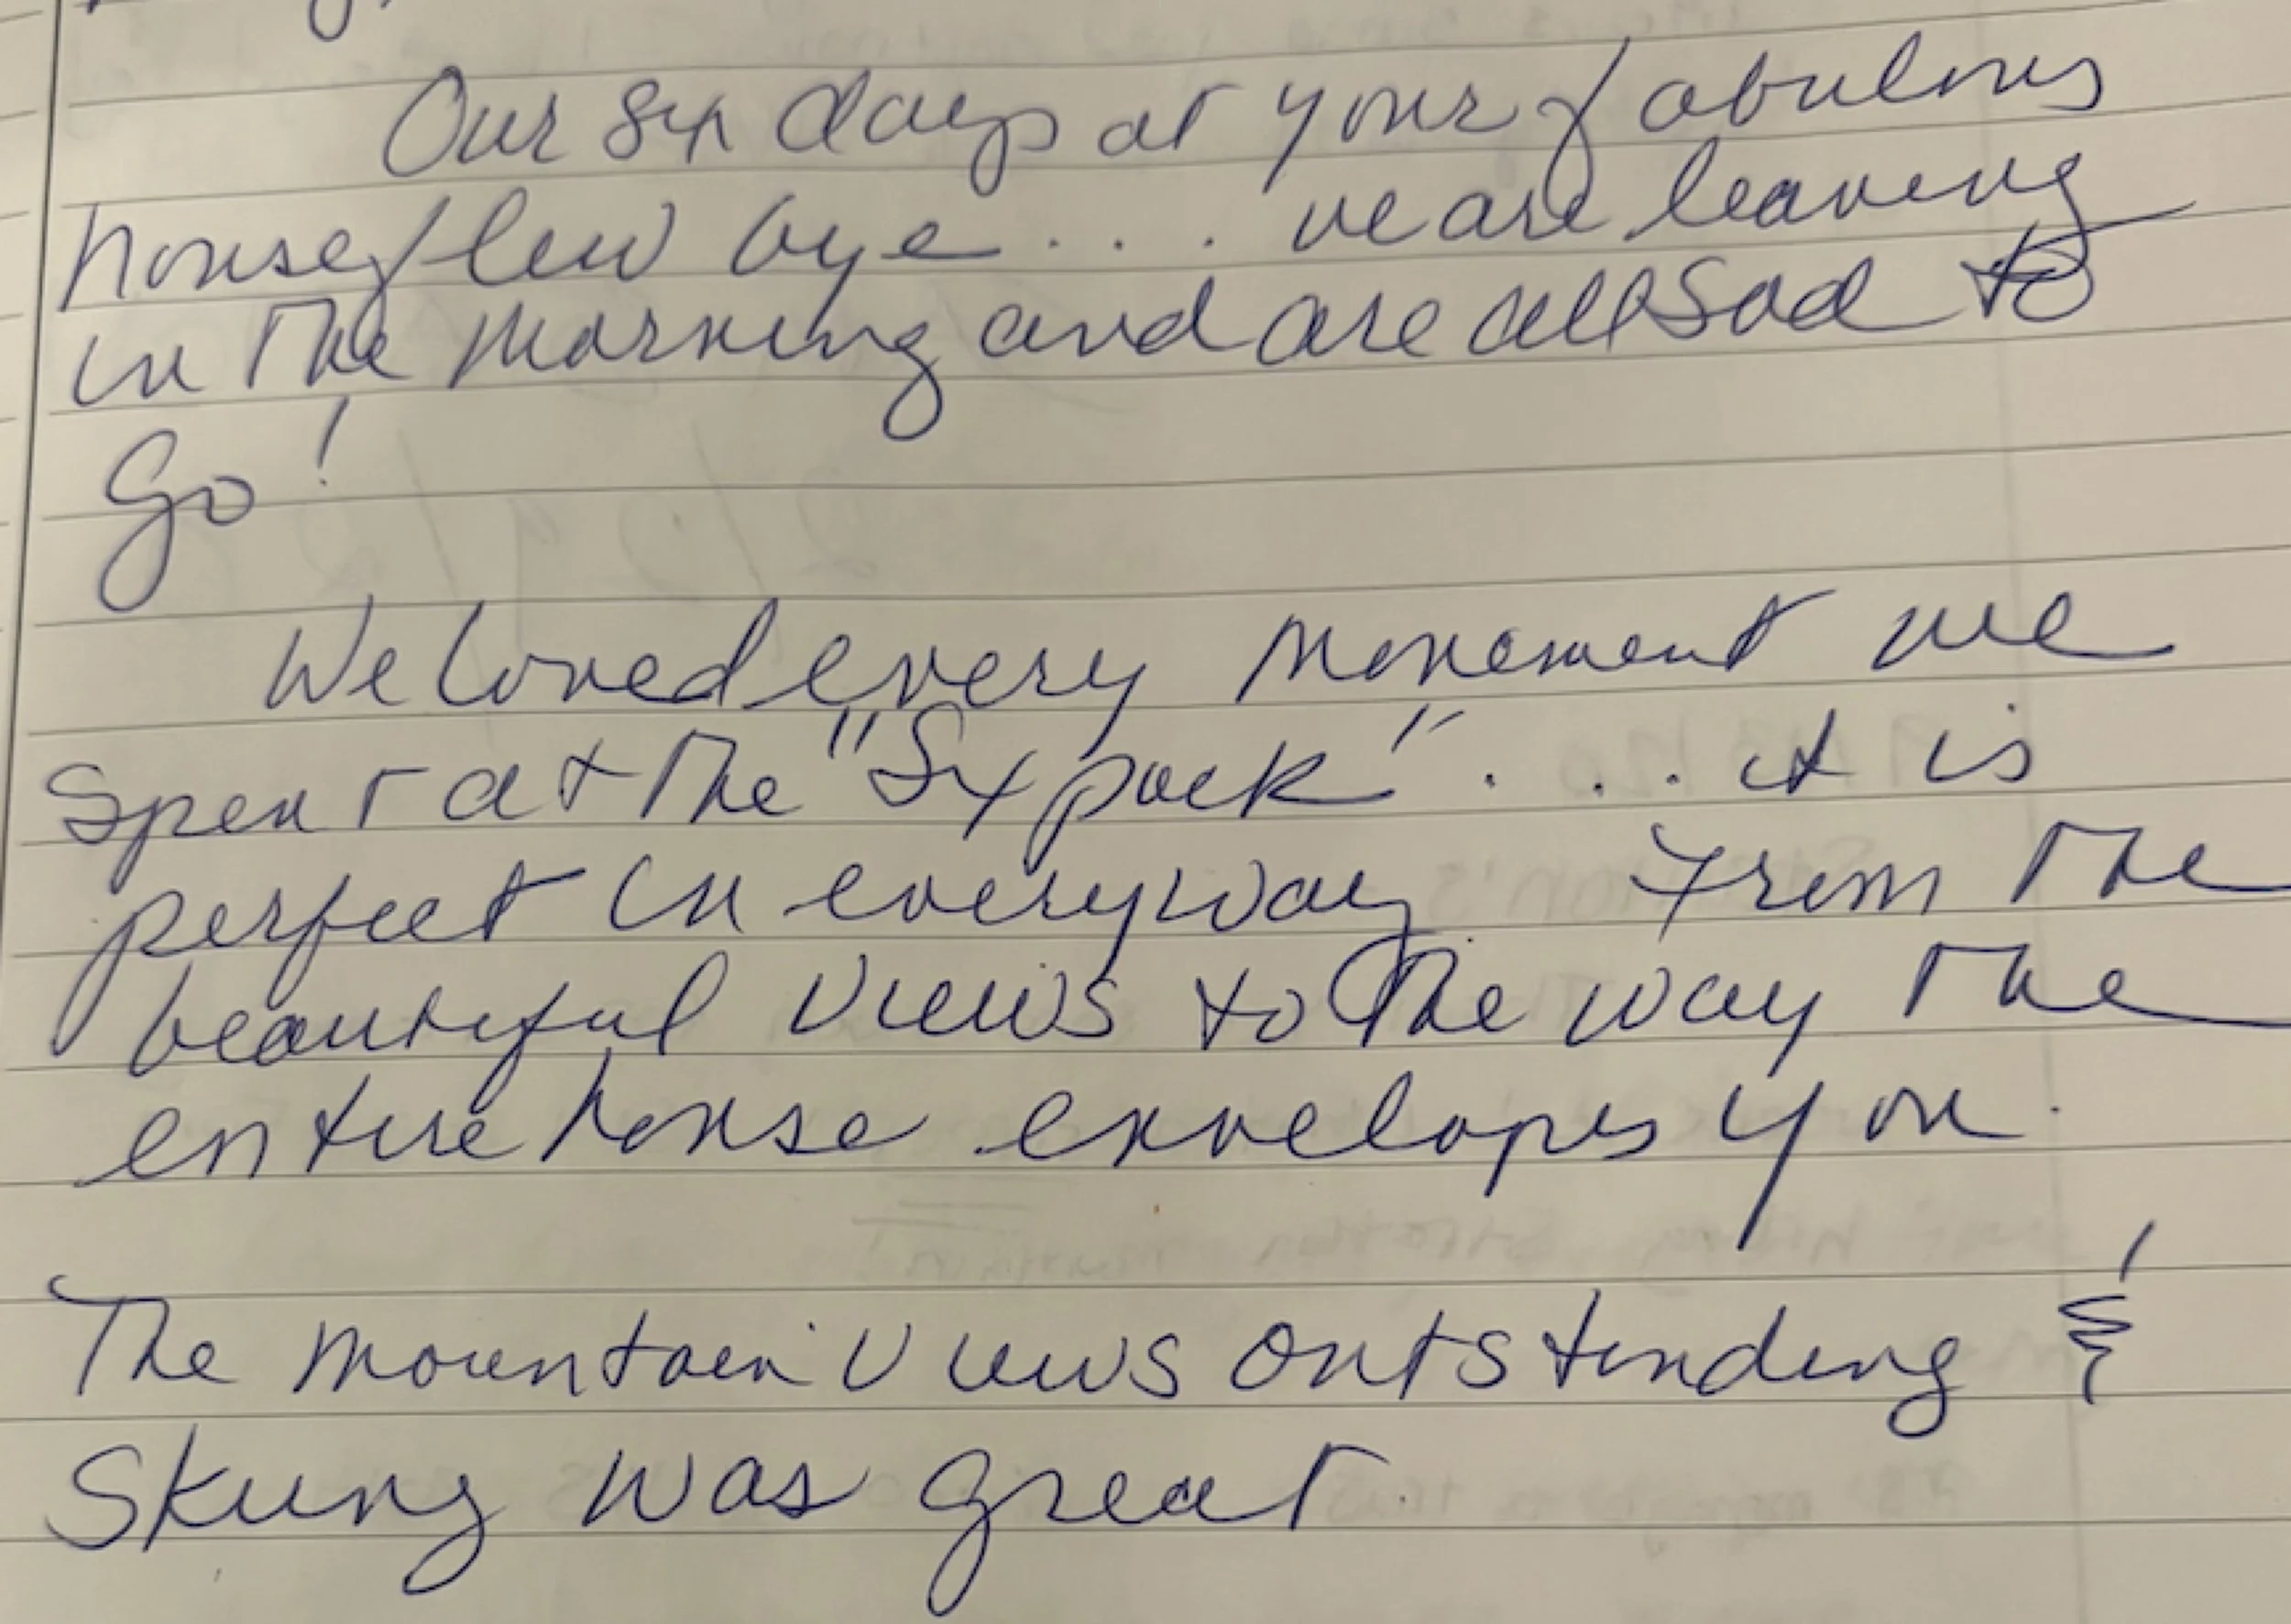 Our six days at your fabulous
house flew bye... we are leaving
in the morning and are all sad to
Go!
We loved every movement we
spent at the "Six pack"... it is
perfect in everyway from the
beautiful views to the way the
entire house envelopes you.
The mountain views outstanding &
Skiing was great.